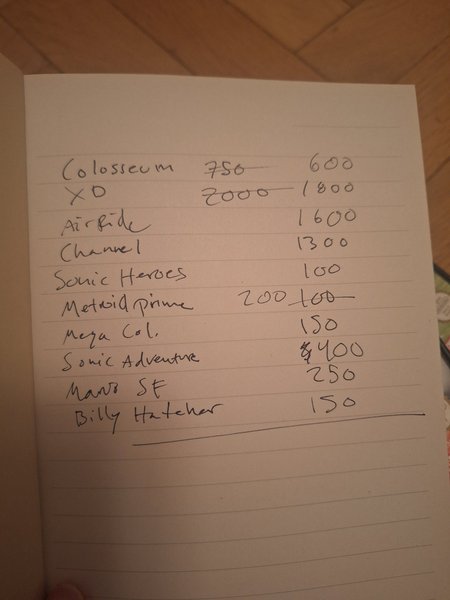 Colosseum 750 600
XD 2000 1800
AirRide 1600
Channel 1300
Sonic Heroes 100
Metroid prime 200 100
Mega Col. 150
Sonic Adventure 400
Mario SF 250
Billy Hatcher 150